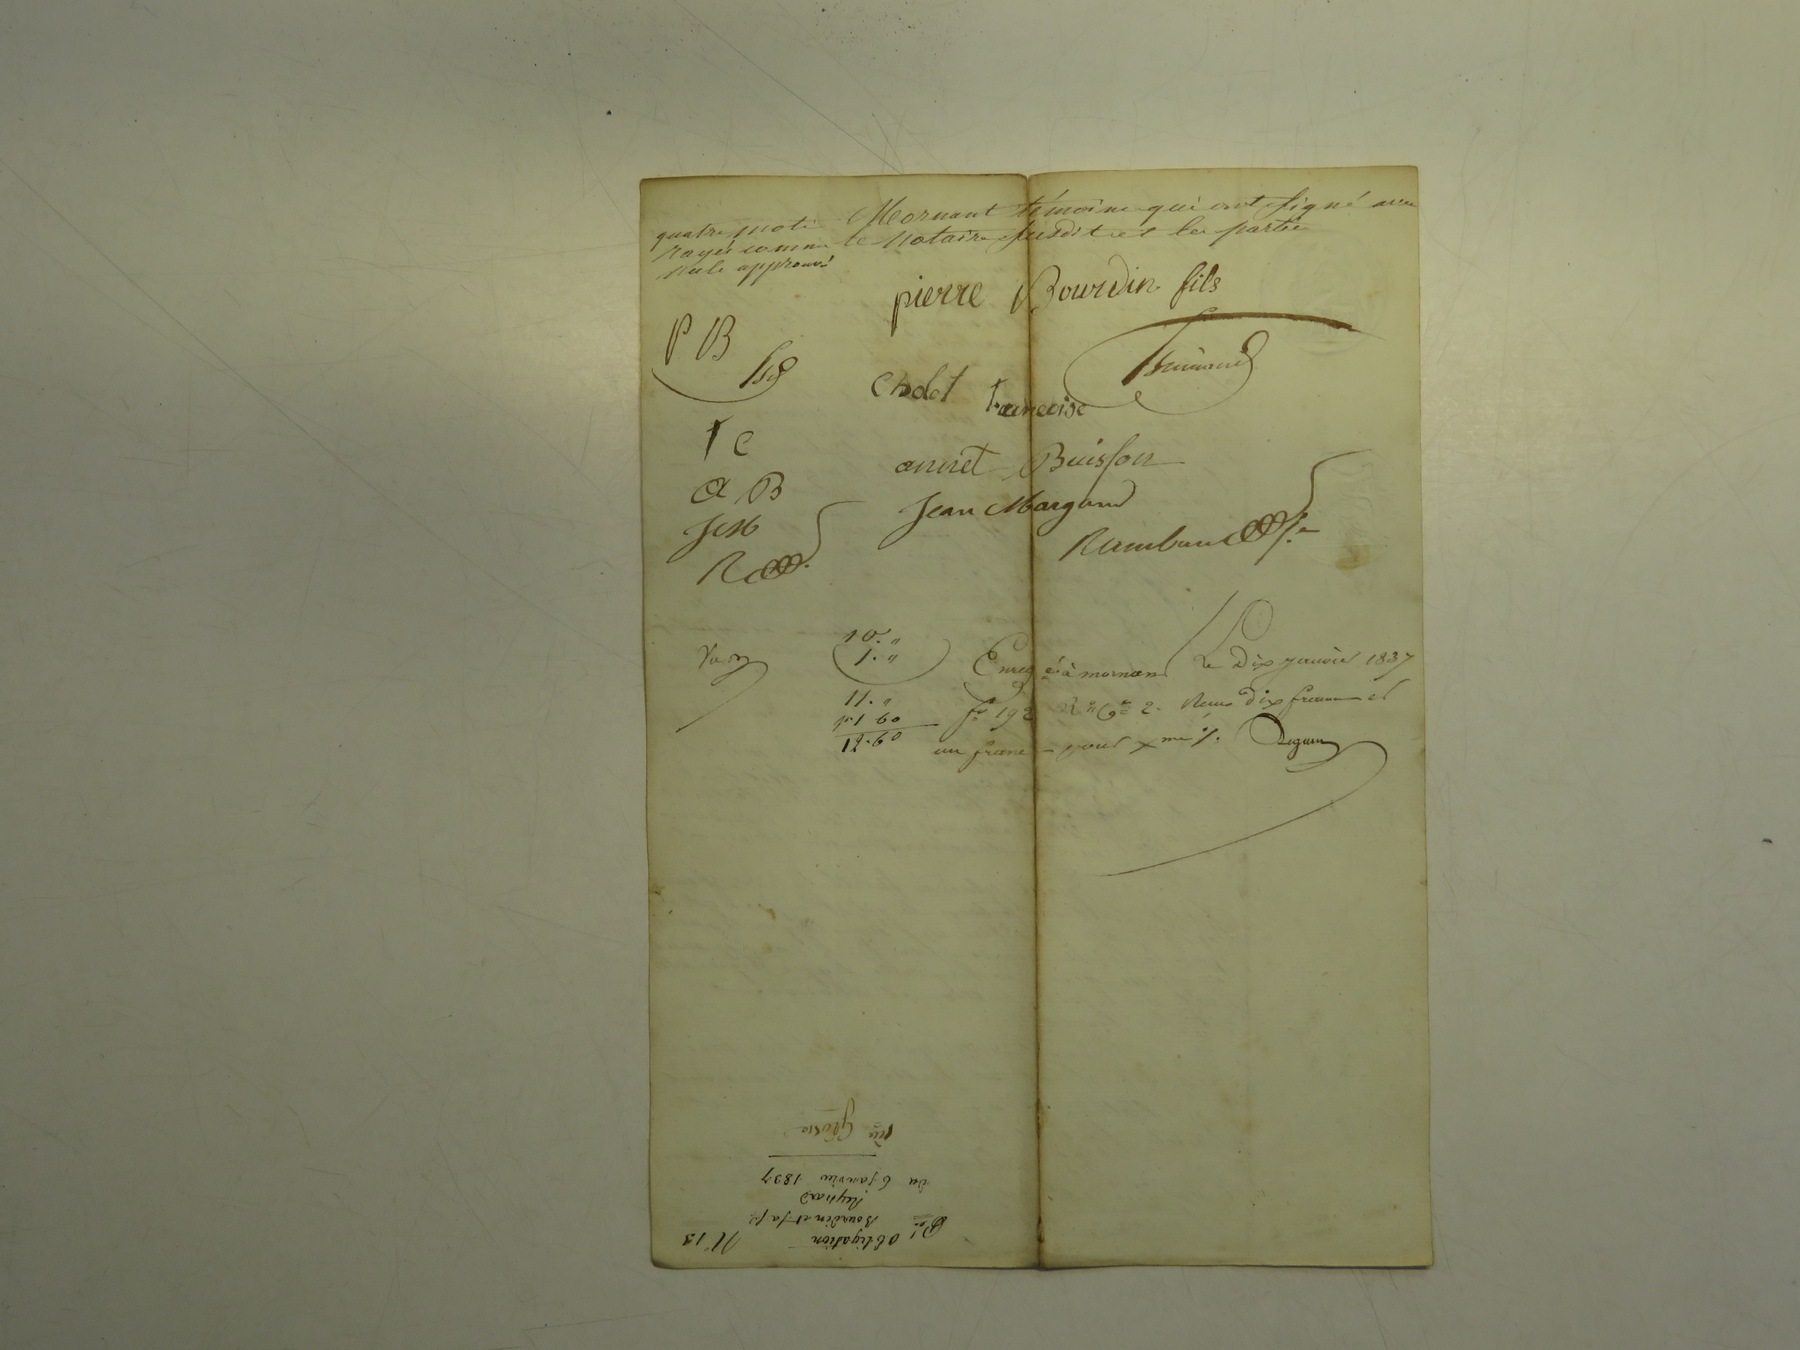 Mornant témoins qui ont signé avec
le Notaire susdit et les parties
quatre mots
rayés comme
nuls approuvé
pierre Bourdin fils
P B
Chol françoise
f C
annet Buisson
a B
Jean Margand
J M
10. "
1. "
11. "
1. 60
12. 60
Enreg. é à mornant Le Dix janvier 1837
f° 192 R° C.e 2. Recu dix francs et
un franc pour Xme
N° 13
Obligation
Bourdin et sa fe
Reynard
du 6 janvier 1837
Grosse